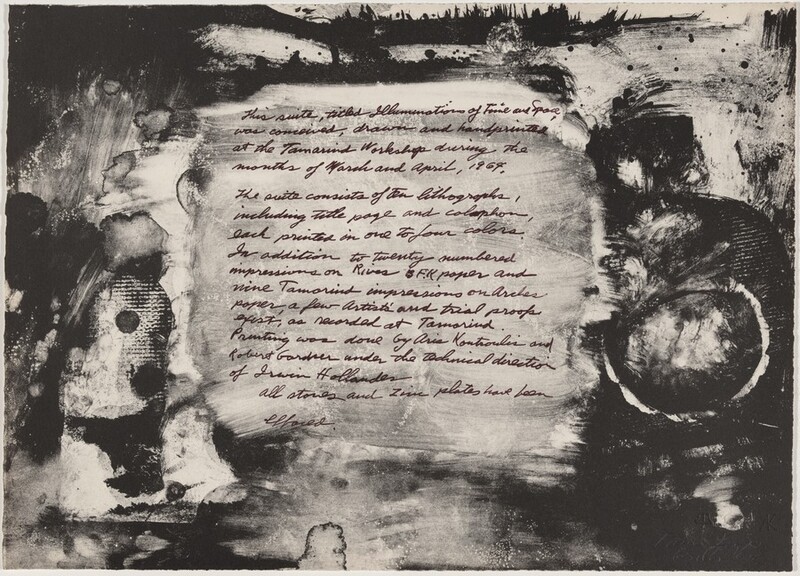 This suite, titled Illuminations of Time and Space,
was conceived, drawn and handprinted
at the Tamarind Workshop during the
months of March and April, 1964.
The suite consists of ten lithographs,
including title page and colophon,
each printed in one to four colors.
In addition to twenty numbered
impressions on Rives BFK paper and
nine Tamarind impressions on Arches
paper, a few Artist's and trial proofs
exist, as recorded at Tamarind
Printing was done by Aris Koutroulis and
Robert Gardner under the technical direction
of Irwin Hollander
All stones and zinc plates have been
effaced.